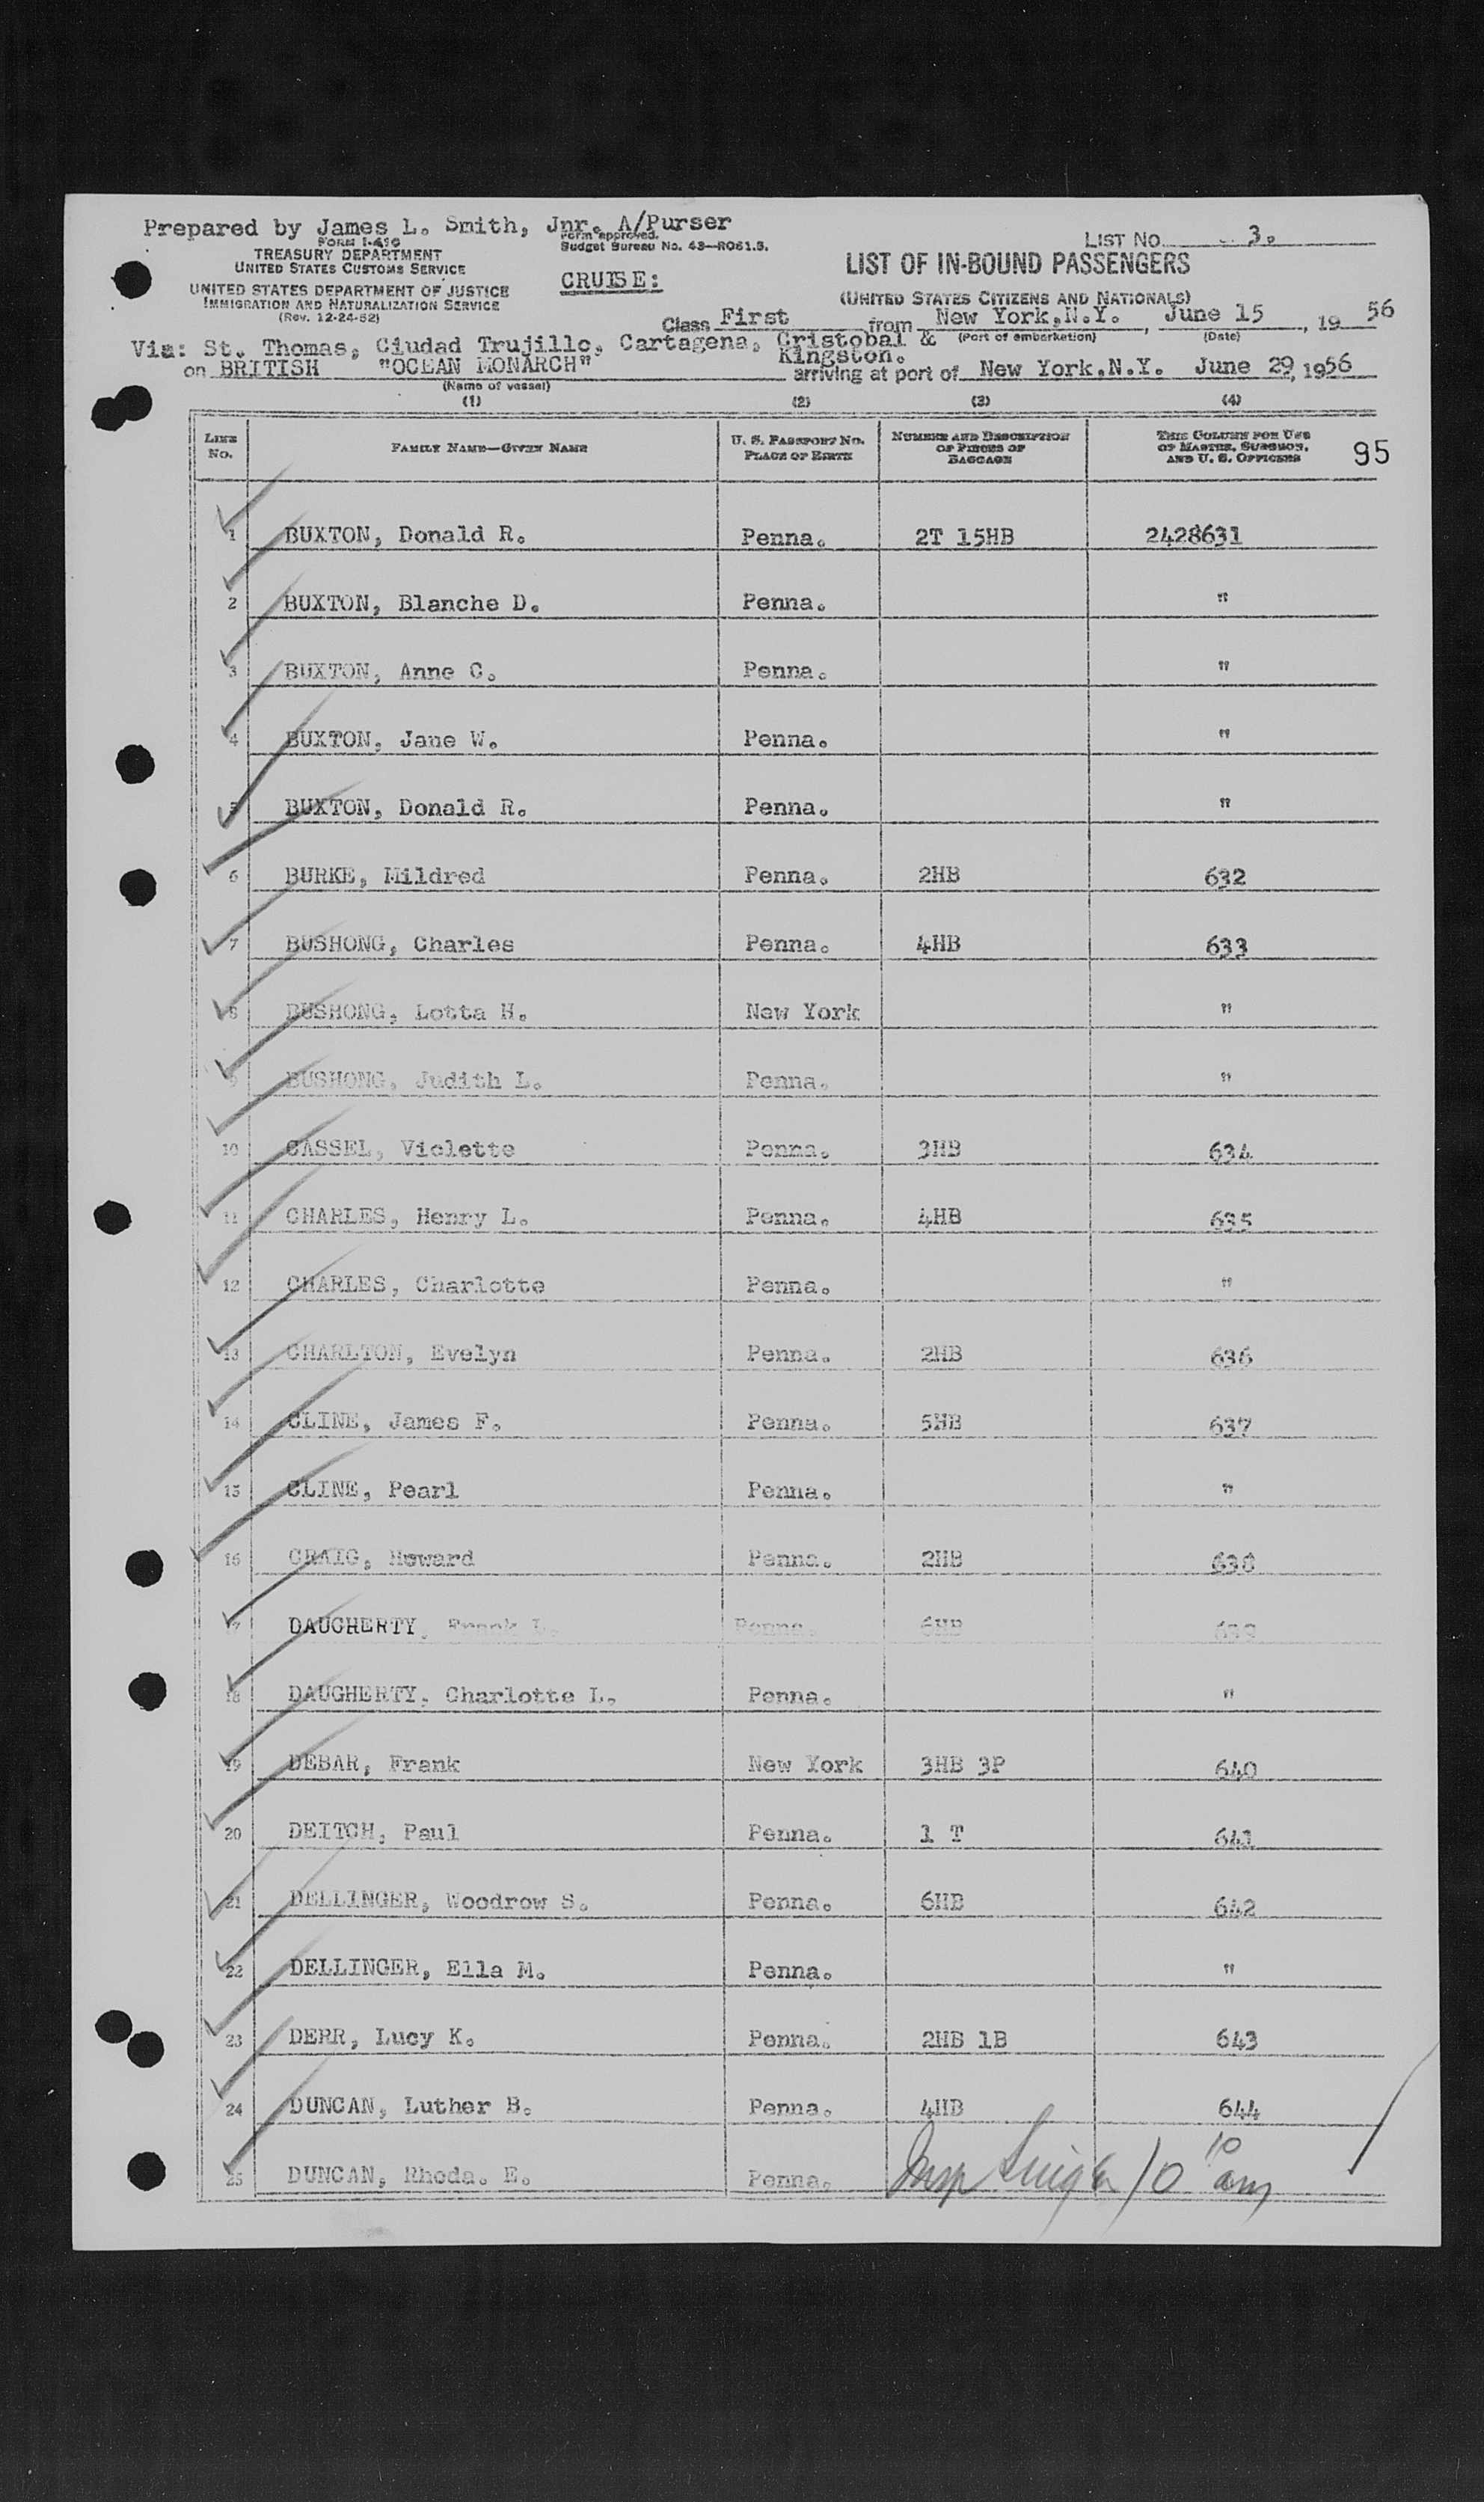 Prepared by James L. Smith, Jnr. A/Purser
FORM I-416
Form approved.
Budget Bureau No. 43—R061.3.
LIST NO. 3.
TREASURY DEPARTMENT
UNITED STATES CUSTOMS SERVICE
CRUISE:
LIST OF IN-BOUND PASSENGERS
UNITED STATES DEPARTMENT OF JUSTICE
IMMIGRATION AND NATURALIZATION SERVICE
(Rev. 12-24-52)
(UNITED STATES CITIZENS AND NATIONALS)
Class First from New York, N.Y., June 15, 1956
(Port of embarkation) (Date)
Via: St. Thomas, Ciudad Trujillo, Cartagena, Cristobal &
Kingston.
on BRITISH "OCEAN MONARCH" arriving at port of New York, N.Y. June 29, 1956
(Name of vessel)
(1) (2) (3) (4)
LINE No. FAMILY NAME—GIVEN NAME U. S. PASSPORT NO. PLACE OF BIRTH NUMBER AND DESCRIPTION OF PIECES OF BAGGAGE THIS COLUMN FOR USE OF MASTER, SURGEON, AND U. S. OFFICERS 95
1 BUXTON, Donald R. Penna. 2T 15HB 2428631
2 BUXTON, Blanche D. Penna. "
3 BUXTON, Anne C. Penna. "
4 BUXTON, Jane W. Penna. "
5 BUXTON, Donald R. Penna. "
6 BURKE, Mildred Penna. 2HB 632
7 BUSHONG, Charles Penna. 4HB 633
8 BUSHONG, Lotta H. New York "
9 BUSHONG, Judith L. Penna. "
10 CASSEL, Violette Penna. 3HB 634
11 CHARLES, Henry L. Penna. 4HB 635
12 CHARLES, Charlotte Penna. "
13 CHARLTON, Evelyn Penna. 2HB 636
14 CLINE, James F. Penna. 5HB 637
15 CLINE, Pearl Penna. "
16 CRAIG, Howard Penna. 2HB 638
17 DAUGHERTY, Frank L. Penna. 6HB 639
18 DAUGHERTY, Charlotte L. Penna. "
19 DEBAR, Frank New York 3HB 3P 640
20 DEITCH, Paul Penna. 1 T 641
21 DELLINGER, Woodrow S. Penna. 6HB 642
22 DELLINGER, Ella M. Penna. "
23 DERR, Lucy K. Penna. 2HB 1B 643
24 DUNCAN, Luther B. Penna. 4HB 644
25 DUNCAN, Rhoda. E. Penna. Insp 10 10 am